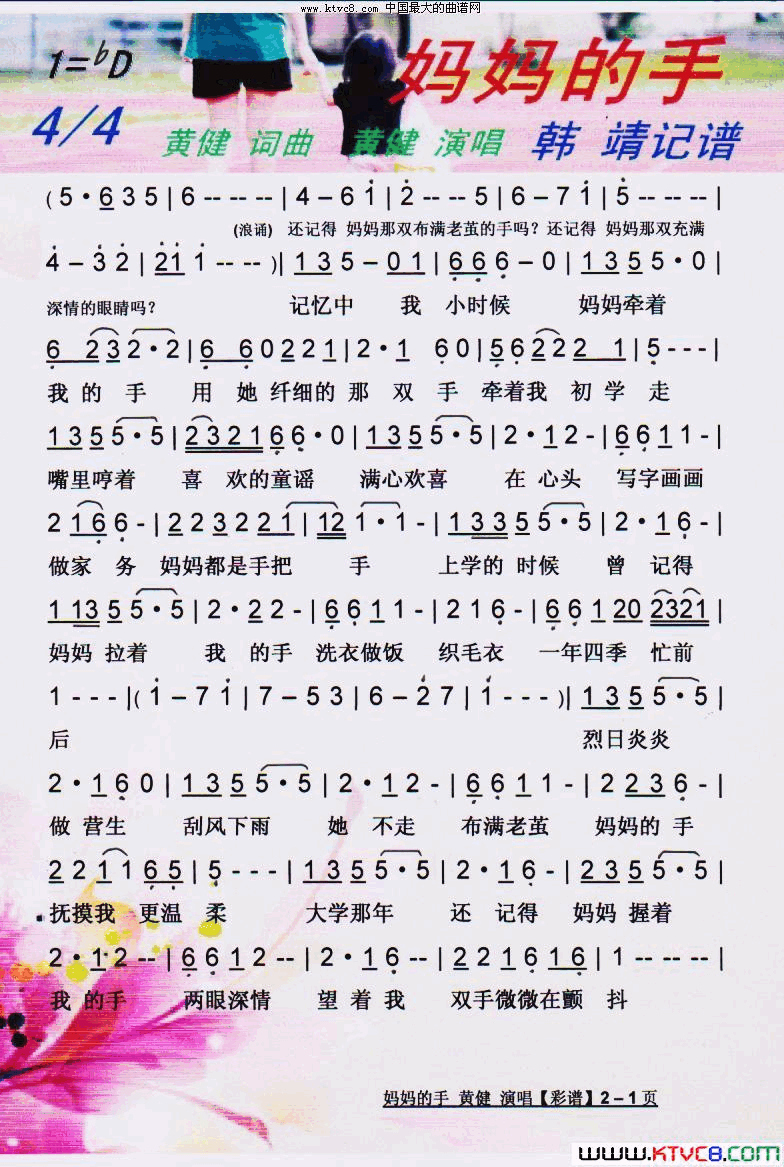 www.ktvc8.com 中国最大的曲谱网
1=♭D
妈妈的手
4/4 黄健 词曲 黄健 演唱 韩 靖记谱
( 5·6 3 5 | 6 -- -- | 4 – 6 i | 2 -- -- 5 | 6 – 7 i | 5 -- -- |
(浪诵) 还记得 妈妈那双布满老茧的手吗? 还记得 妈妈那双充满
4 – 3 2 | 21 1 -- -- )| 1 3 5 – 0 1 | 6 6 6 – 0 | 1 3 5 5·0 |
深情的眼睛吗? 记忆中 我 小时候 妈妈牵着
6 2 3 2·2 | 6 6 0 2 2 1 | 2·1 6 0 | 5 6 2 2 2 1 | 5 - - - |
我 的 手 用 她 纤细的 那 双 手 牵着我 初 学 走
1 3 5 5 5·5 | 2 3 2 1 6 6·0 | 1 3 5 5 5·5 | 2·1 2 - | 6 6 1 1 - |
嘴里哼着 喜 欢的童谣 满心欢喜 在 心头 写字画画
2 1 6 6 - | 2 2 3 2 2 1 | 12 1·1 - | 1 3 3 5 5 5·5 | 2·1 6 - |
做家 务 妈妈都是手把 手 上学的 时候 曾 记得
1 13 5 5·5 | 2·2 2 - | 6 6 1 1 - | 2 1 6 - | 6 6 1 20 2321 |
妈妈 拉着 我 的手 洗衣做饭 织毛衣 一年四季 忙前
1 - - - |( i – 7 i | 7 – 5 3 | 6 – 2 7 | i - - - )| 1 3 5 5·5 |
后 烈日炎炎
2·1 6 0 | 1 3 5 5 5·5 | 2·1 2 - | 6 6 1 1 - | 2 2 3 6 - |
做 营生 刮风下雨 她 不走 布满老茧 妈妈的 手
2 2 1 1 6 5 | 5 - - - | 1 3 5 5 5·5 | 2·1 6 - | 2 3 5 5 5·5 |
抚摸我 更温 柔 大学那年 还 记得 妈妈 握着
2·1 2 -- | 6 6 1 2 -- | 2·1 6 -- | 2 2 1 6 1 6 | 1 -- -- |
我 的手 两眼深情 望 着 我 双手微微在颤 抖
妈妈的手 黄健 演唱【彩谱】2－1页
www.KTVC8.com